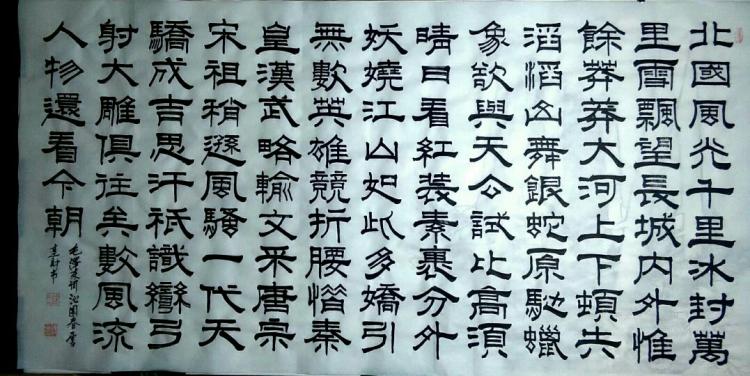 北國風光千里冰封萬
里雪飄望長城内外惟
餘莽莽大河上下頓失
滔滔山舞銀蛇原馳蠟
象欲與天公試比高須
晴日看紅裝素裹分外
妖嬈江山如此多嬌引
無數英雄競折腰惜秦
皇漢武略輸文采唐宗
宋祖稍遜風騷一代天
驕成吉思汗祇識彎弓
射大雕俱往矣數風流
人物還看今朝
毛澤東詞沁園春雪
书